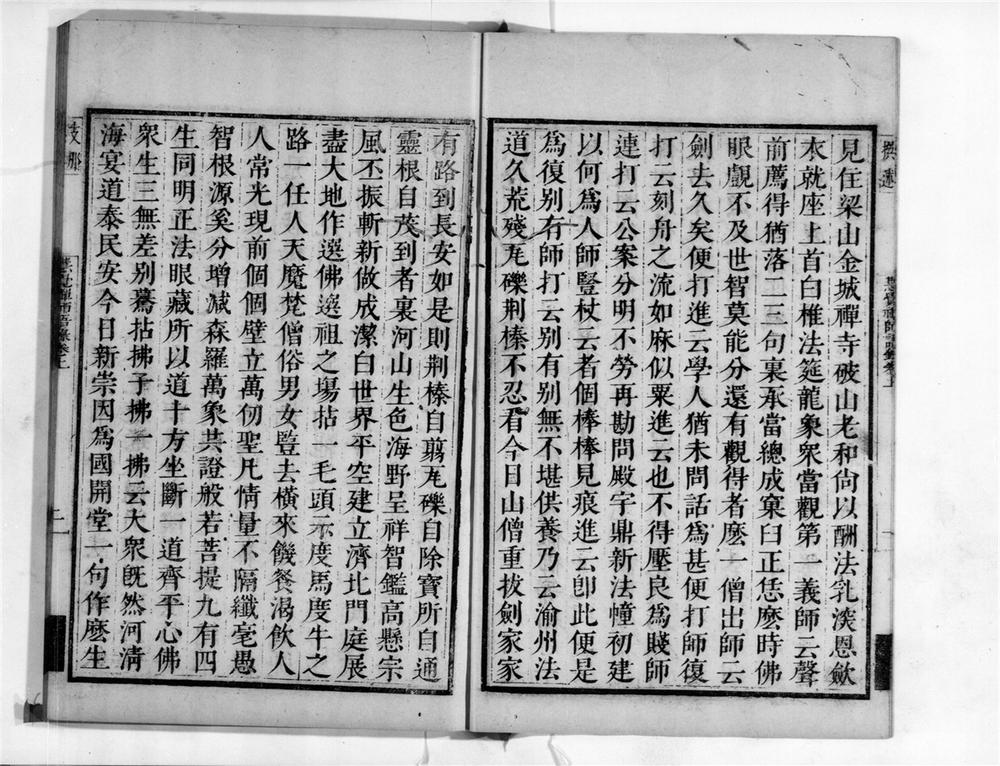 見住梁山金城禪寺破山老和尚以酬法乳深恩斂
衣就座上首白椎法筵龍象衆當觀第一義師云聲
前薦得猶落二三句裏承當總成窠臼正恁麽時佛
眼覰不及世智莫能分還有觀得者麽一僧出師云
劍去久矣便打進云學人猶未問話爲甚便打師復
打云刻舟之流如麻似粟進云也不得壓良爲賤師
連打云公案分明不勞再勘問殿宇鼎新法幢初建
以何爲人師豎杖云者個棒棒見痕進云卽此便是
爲復別有師打云別有別無不堪供養乃云渝州法
道久荒殘瓦礫荆榛不忍看今日山僧重拔劍家家
有路到長安如是則荆榛自翦瓦礫自除寶所自通
靈根自茂到者裏河山生色海野呈祥智鑑高懸宗
風丕振斬新做成潔白世界平空建立濟北門庭展
盡大地作選佛選祖之塲拈一毛頭示度馬度牛之
路一任人天魔梵僧俗男女豎去橫來饑餐渴飲人
人常光現前個個壁立萬仞聖凡情量不隔纖毫愚
智根源奚分增減森羅萬象共證般若菩提九有四
生同明正法眼藏所以道十方坐斷一道齊平心佛
衆生三無差別驀拈拂子拂一拂云大衆旣然河淸
海宴道泰民安今日新崇因爲國開堂一句作麽生